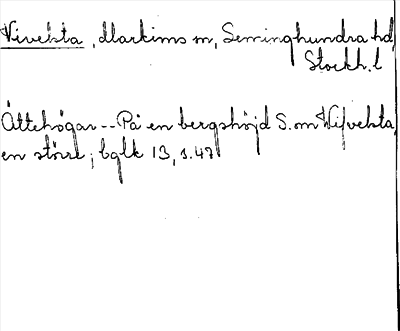 Vivelsta, Markims sn, Seminghundra hd
Stockh. l
Ättehögar -- På en bergshöjd S. om Wifvelsta,
en större; bglk 13, s. 47